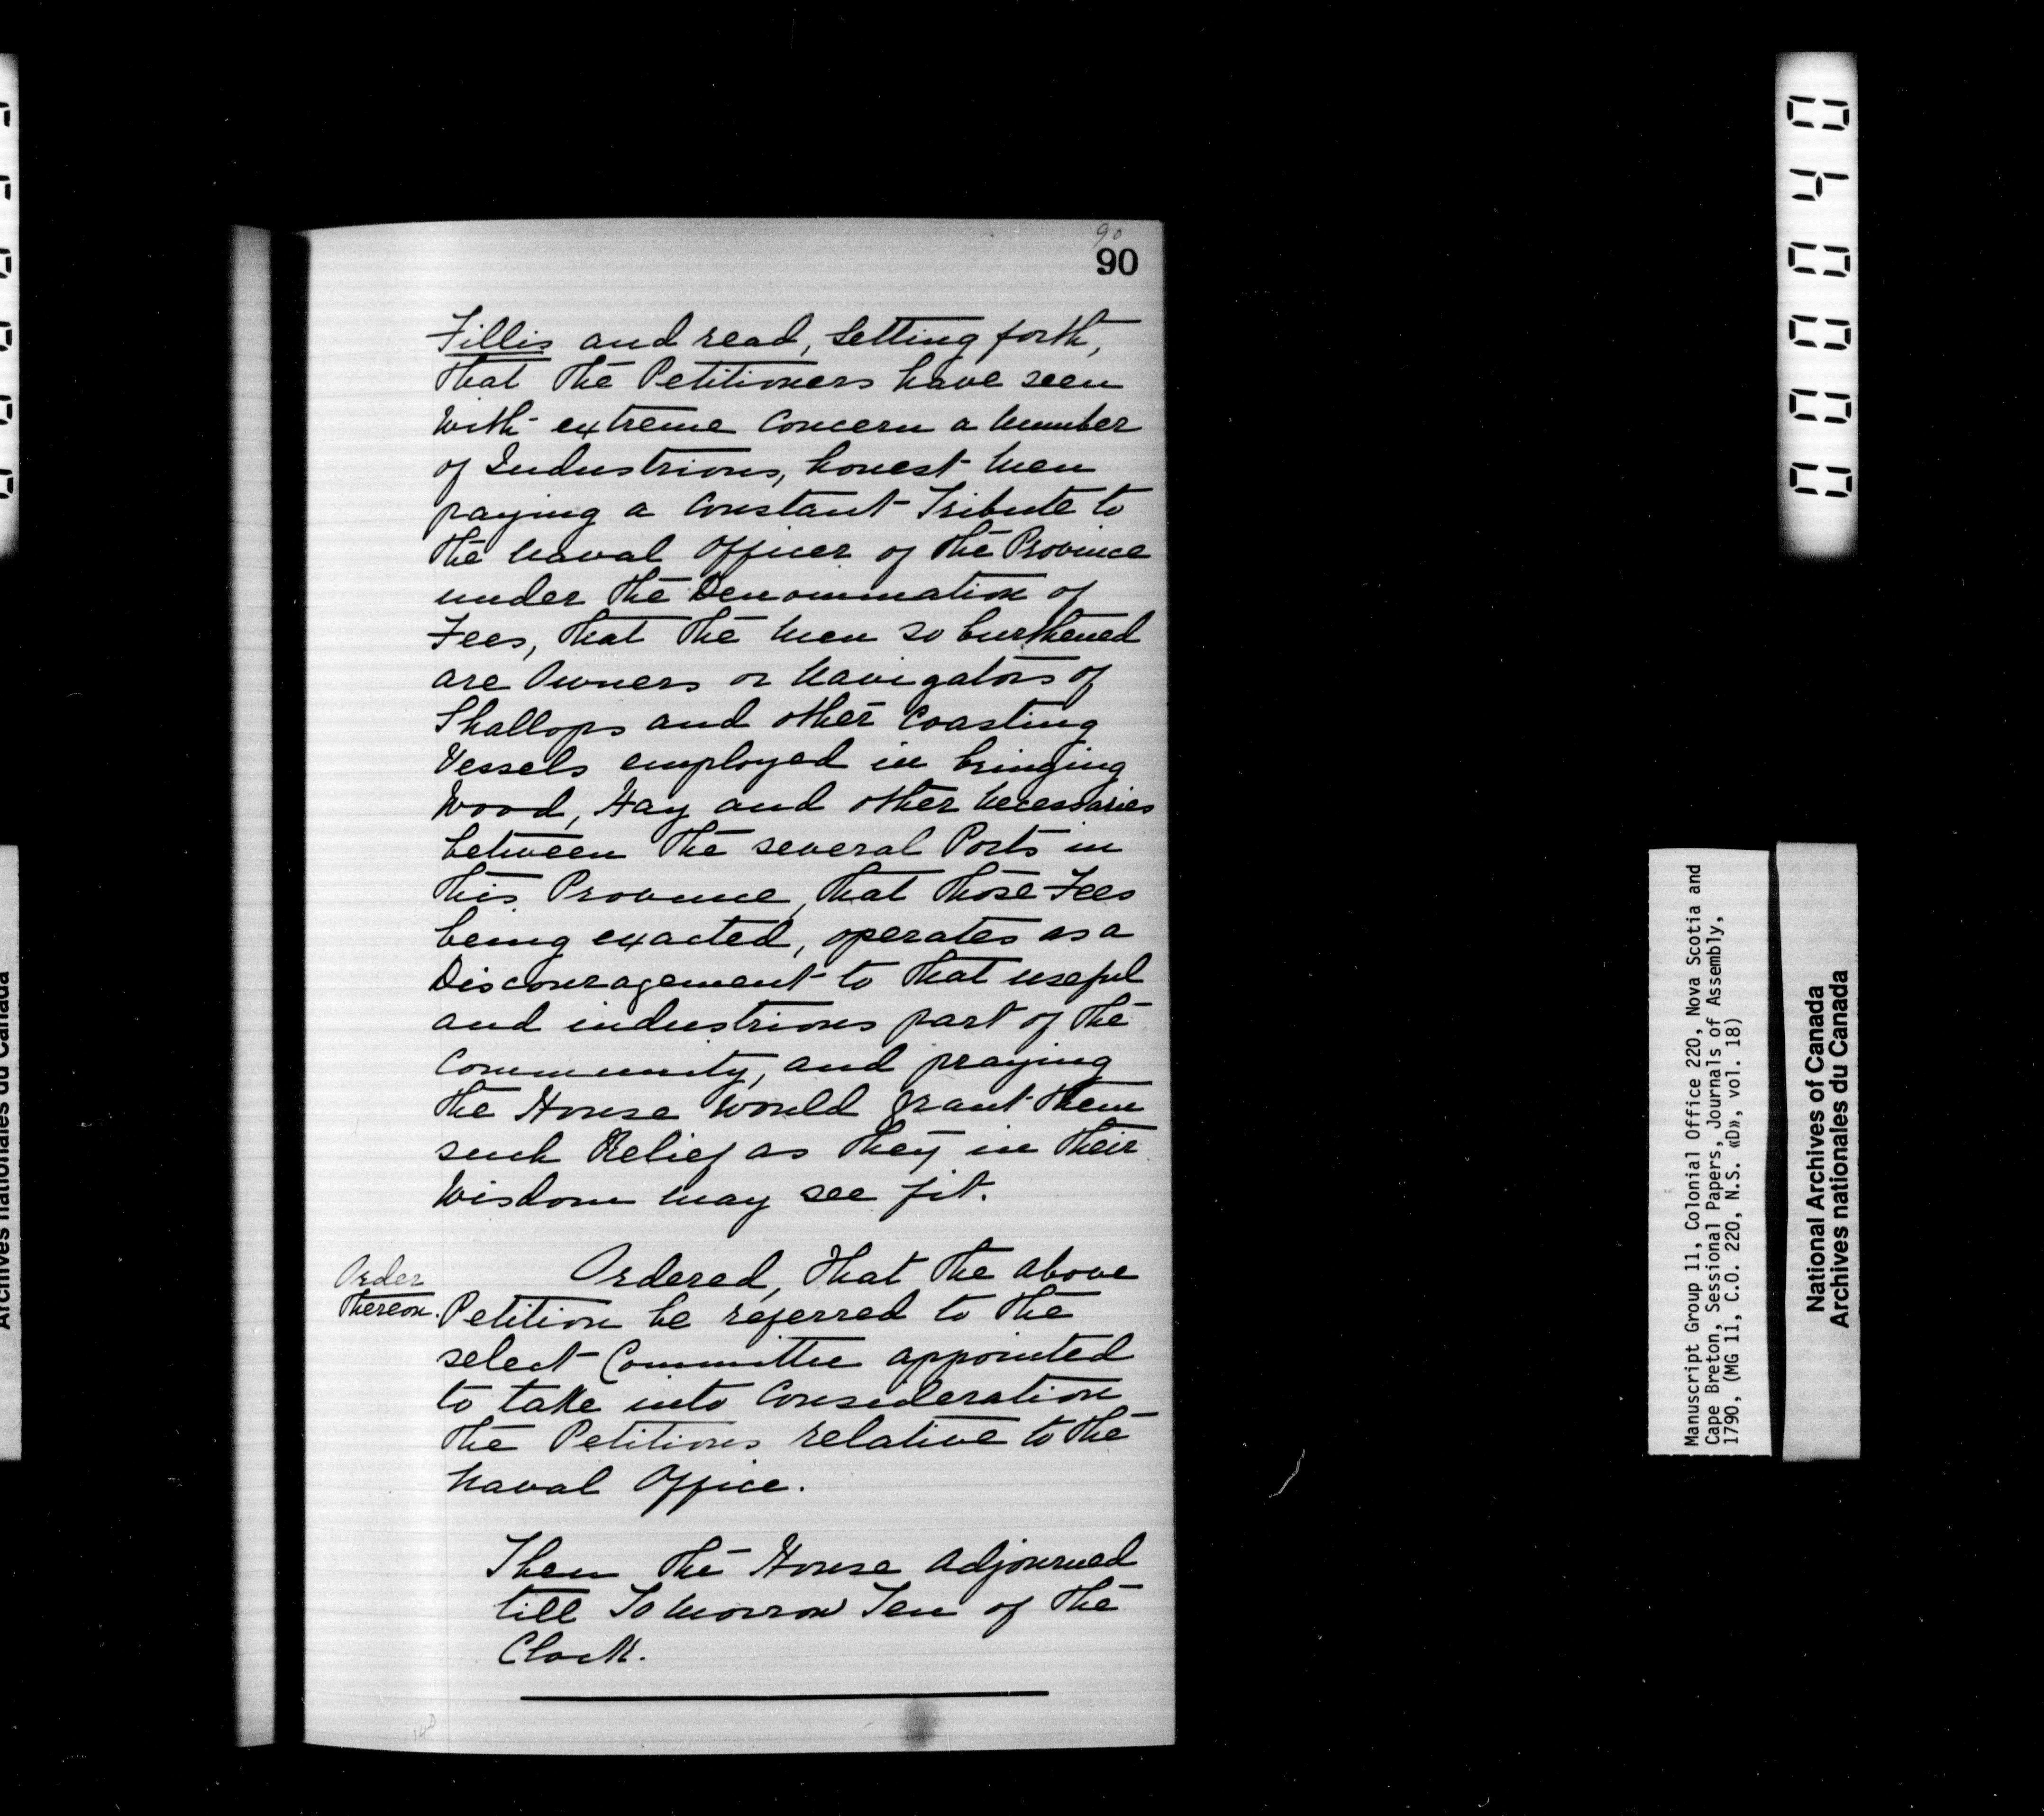 90
90
Fillis and read, Setting forth,
that the Petitioners have seen
with extreme Concern a Number
of Industrious, honest Men
paying a Constant Tribute to
the Naval Officer of the Province
under the Denomination of
Fees, that the Men so burthened
are Owners or Navigators of
Shallops and other Coasting
Vessels employed in bringing
Wood, Hay and other Necessaries
between the several Ports in
this Province, that those Fees
being exacted, operates as a
Discouragement to that useful
and industrious part of the
Community, and praying
the House would grant them
such Relief as they in their
Wisdom may see fit.
Order
thereon.
Ordered, That the above
Petition be referred to the
select Committee appointed
to take into Consideration
the Petitions relative to the
Naval Office.
Then the House adjourned
till To Morrow Ten of the
Clock.
000040
Manuscript Group 11, Colonial Office 220, Nova Scotia and
Cape Breton, Sessional Papers, Journals of Assembly,
1790, (MG 11, C.O. 220, N.S. «D», vol. 18)
National Archives of Canada
Archives nationales du Canada
Archives nationales du Canada